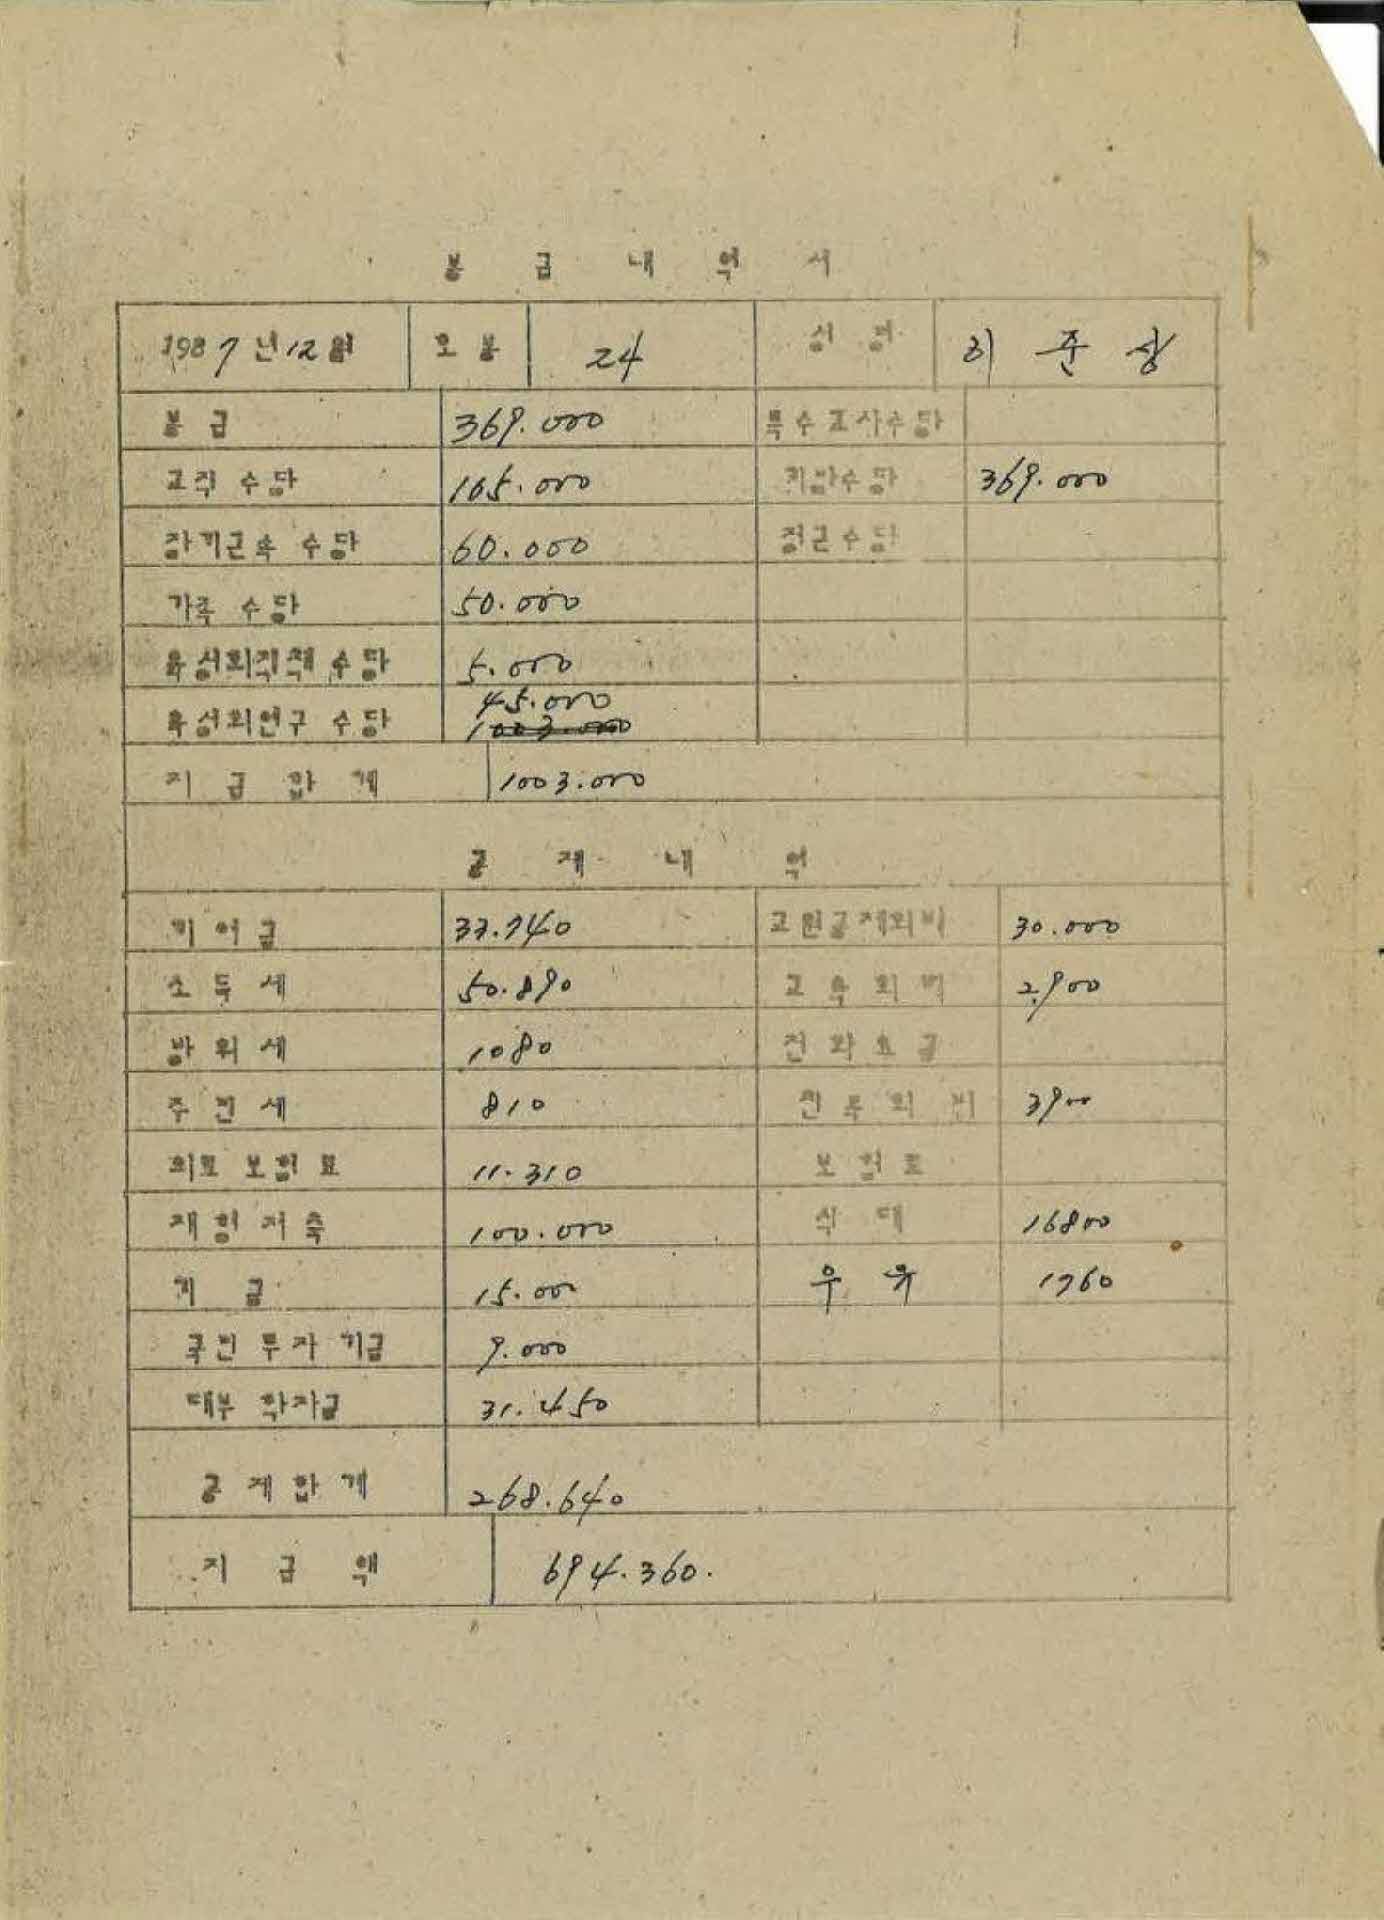 봉 급 내 역 서
1987년 12월 호봉 24 성명 이 준 상
봉 급 369.000 특수교사수당
교직 수당 105.000 기말수당 369.000
장기근속 수당 60.000 정근수당
가족 수당 50.000
육성회직책 수당 5.000
45.000
육성회연구 수당 1003.000
지 급 합 계 1003.000
공 제 내 역
기여금 33.740 교원공제회비 30.000
소득세 50.890 교육회비 2,900
방위세 1080 전화요금
주민세 810 친목회비 3900
의료 보험료 11.310 보험료
재형저축 100.000 식 대 16800
기 금 15.00 우 유 1760
국민 투자 기금 9.000
대부 학자금 31.450
공 제 합 계 268.640
지 급 액 694.360.